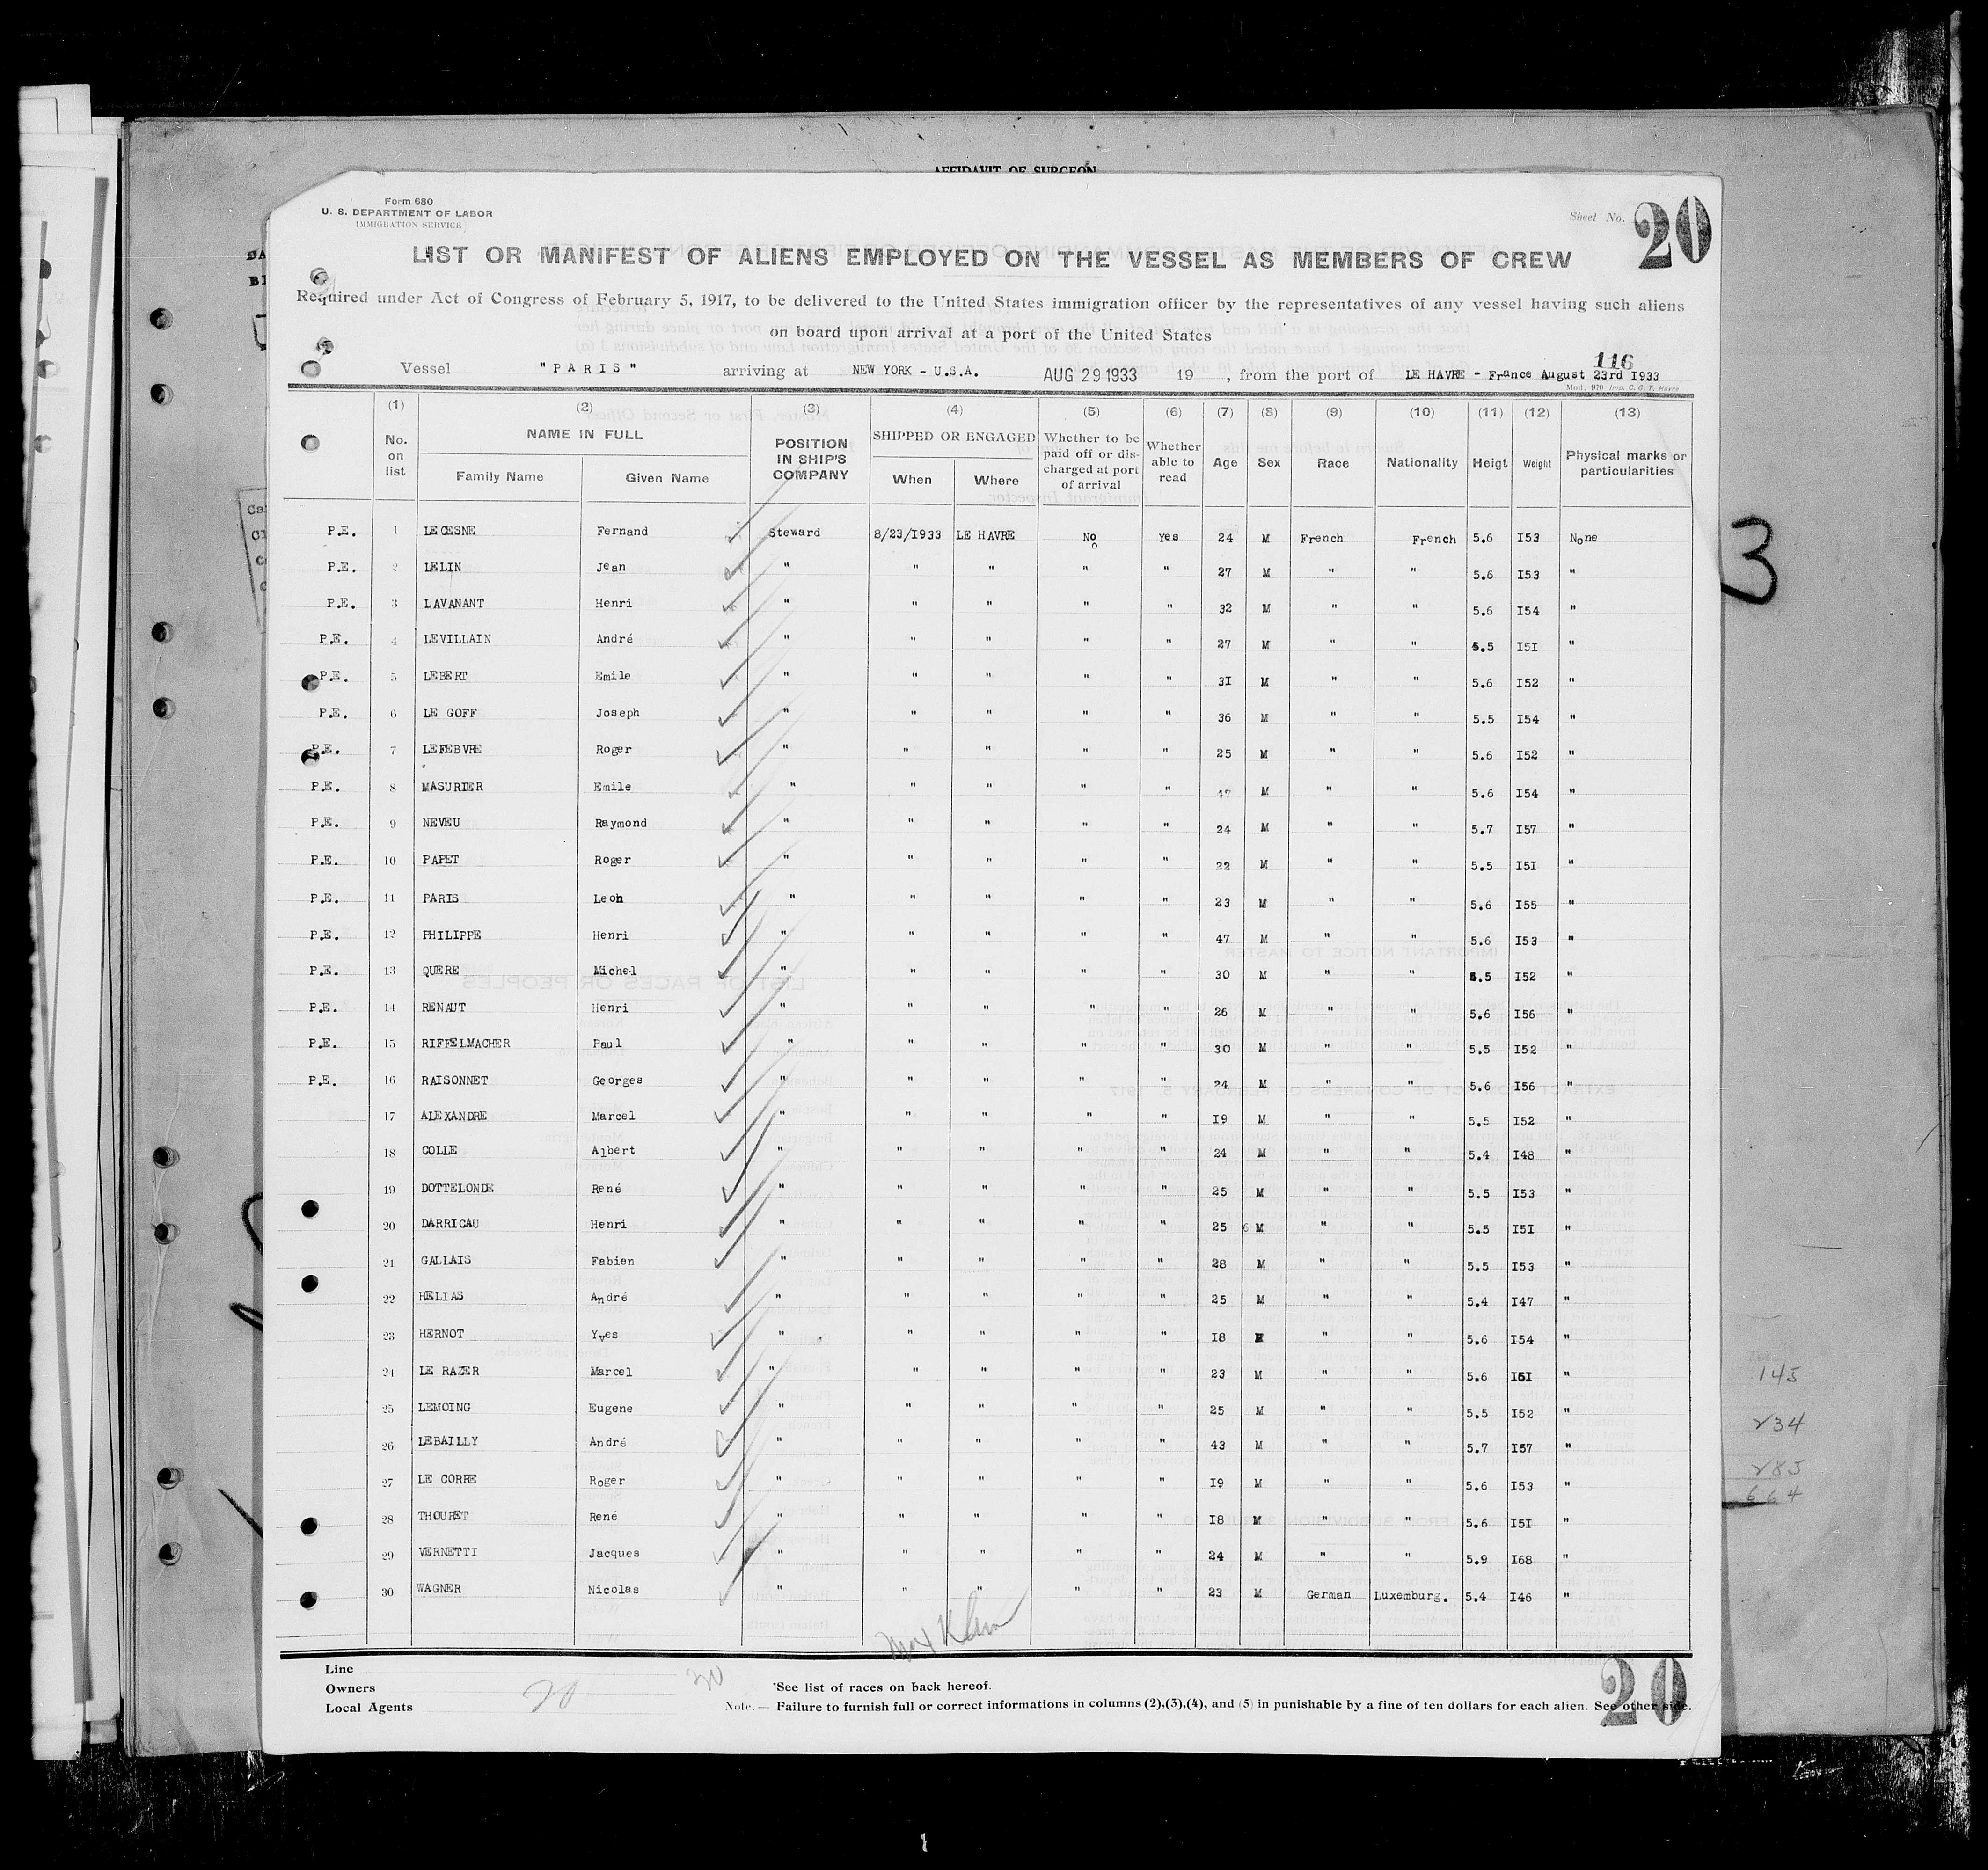 AFFIDAVIT OF SURGEON
Form 680
U. S. DEPARTMENT OF LABOR
IMMIGRATION SERVICE
Sheet No. 20
LIST OR MANIFEST OF ALIENS EMPLOYED ON THE VESSEL AS MEMBERS OF CREW
Required under Act of Congress of February 5, 1917, to be delivered to the United States immigration officer by the representatives of any vessel having such aliens
on board upon arrival at a port of the United States
116
Vessel "PARIS" arriving at NEW YORK - U.S.A. AUG 29 1933 19 , from the port of LE HAVRE - France August 23rd I933
Mod. 970 Imp. C. G. T. Havre
(1) (2) (3) (4) (5) (6) (7) (8) (9) (10) (11) (12) (13)
No. on list NAME IN FULL Family Name Given Name POSITION IN SHIP'S COMPANY SHIPPED OR ENGAGED When Where Whether to be paid off or discharged at port of arrival Whether able to read Age Sex Race Nationality Heigt Weight Physical marks or particularities
P.E. 1 LECESNE Fernand Steward 8/23/I933 LE HAVRE No Yes 24 M French French 5.6 I53 None
P.E. 2 LELIN Jean " " " " " 27 M " " 5.6 I53 "
P.E. 3 LAVANANT Henri " " " " " 32 M " " 5.6 I54 "
P.E. 4 LEVILLAIN André " " " " " 27 M " " 5.5 I5I "
P.E. 5 LEBERT Emile " " " " " 3I M " " 5.6 I52 "
P.E. 6 LE GOFF Joseph " " " " " 36 M " " 5.5 I54 "
P.E. 7 LEFEBVRE Roger " " " " " 25 M " " 5.6 I52 "
P.E. 8 MASURIER Emile " " " " " 47 M " " 5.6 I54 "
P.E. 9 NEVEU Raymond " " " " " 24 M " " 5.7 I57 "
P.E. 10 PAPET Roger " " " " " 22 M " " 5.5 I5I "
P.E. 11 PARIS Leon " " " " " 23 M " " 5.6 I55 "
P.E. 12 PHILIPPE Henri " " " " " 47 M " " 5.6 I53 "
P.E. 13 QUERE Michel " " " " " 30 M " " 5.5 I52 "
P.E. 14 RENAUT Henri " " " " " 26 M " " 5.6 I56 "
P.E. 15 RIFFELMACHER Paul " " " " " 30 M " " 5.5 I52 "
P.E. 16 RAISONNET Georges " " " " " 24 M " " 5.6 I56 "
17 ALEXANDRE Marcel " " " " " I9 M " " 5.5 I52 "
18 COLLE Albert " " " " " 24 M " " 5.4 I48 "
19 DOTTELONDE René " " " " " 25 M " " 5.5 I53 "
20 DARRICAU Henri " " " " " 25 6 M " " 5.5 I5I "
21 GALLAIS Fabien " " " " " 28 M " " 5.5 I53 "
22 HELIAS André " " " " " 25 M " " 5.4 I47 "
23 HERNOT Yves " " " " " I8 M " " 5.6 I54 "
24 LE RAZER Marcel " " " " " 23 M " " 5.6 I5I "
25 LEMOING Eugene " " " " " 25 M " " 5.5 I52 "
26 LEBAILLY André " " " " " 43 M " " 5.7 I57 "
27 LE CORRE Roger " " " " " I9 M " " 5.6 I53 "
28 THOURET René " " " " " I8 M " " 5.6 I5I "
29 VERNETTI Jacques " " " " " 24 M " " 5.9 I68 "
30 WAGNER Nicolas " " " " " 23 M German Luxemburg. 5.4 I46 "
Line
Owners
Local Agents
20
20
*See list of races on back hereof.
Note. — Failure to furnish full or correct informations in columns (2),(3),(4), and (5) in punishable by a fine of ten dollars for each alien. See other side.
20
3
145
234
285
664